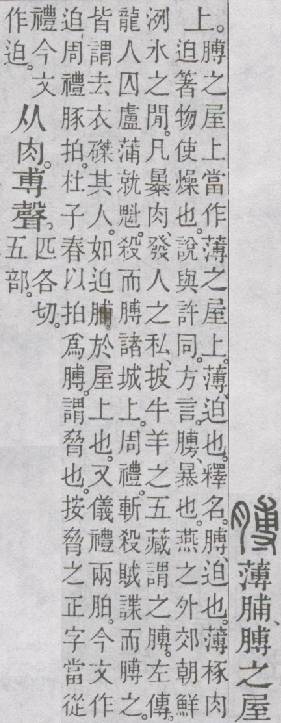 膊薄脯、膊之屋
上。膊之屋上當作薄之屋上。薄、迫也。釋名。膊、迫也。薄椓肉
迫箸物使燥也。說與許同。方言。膊、暴也。燕之外郊朝鮮
洌水之閒。凡暴肉、發人之私、披牛羊之五藏謂之膊。左傳。
龍人囚盧蒲就魁。殺而膊諸城上。周禮。斬殺賊諜而膊之。
皆謂去衣磔其人。如迫脯於屋上也。又儀禮兩胉。今文作
迫、周禮豚拍。杜子春以拍爲膊。謂脅也。按脅之正字當從
禮今文
作迫。
从肉。尃聲。
匹各切。
五部。